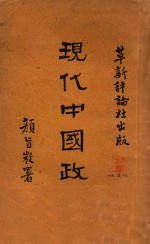 革新評論社出版
現代中國政
顏旨微署